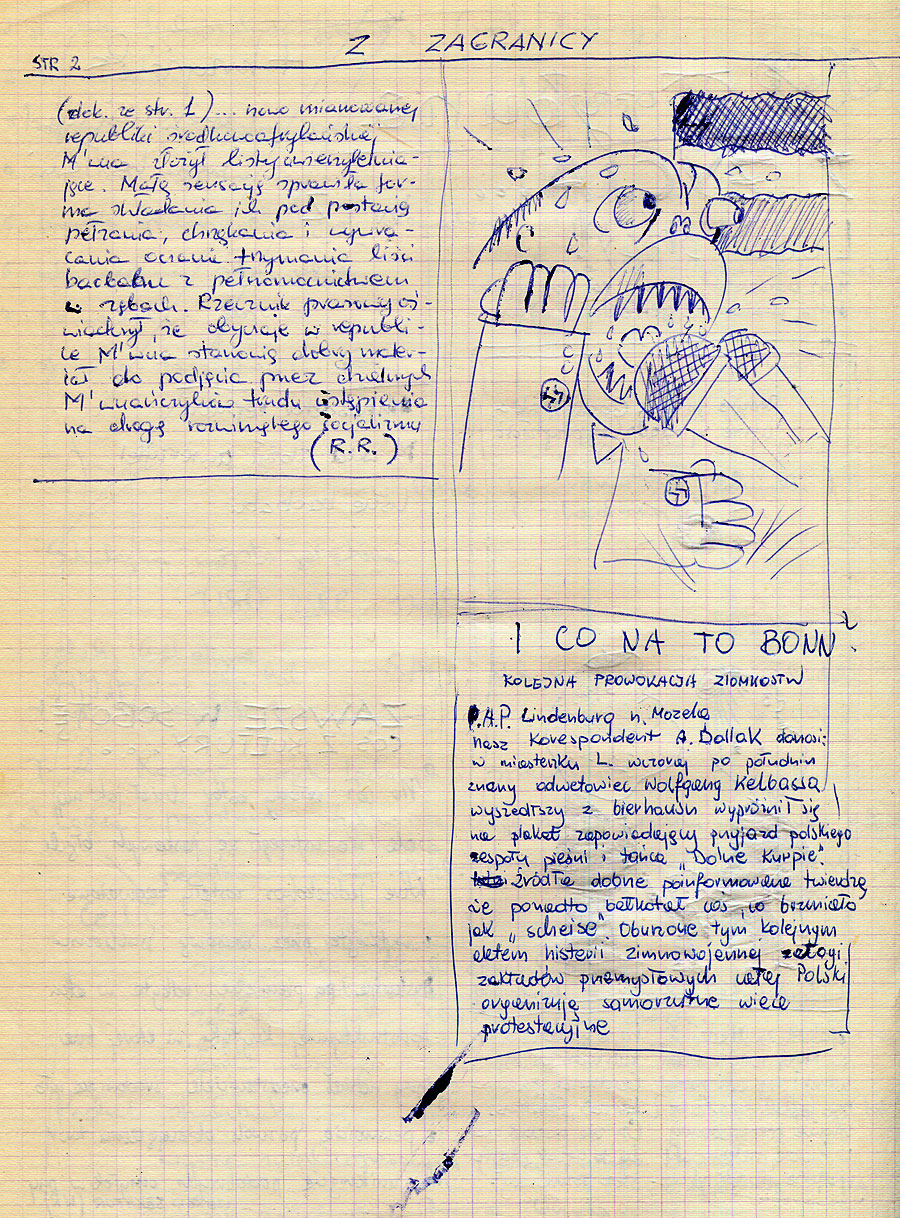 STR 2
Z ZAGRANICY
(dok. ze str. 1)... nowo mianowanej
republiki środkowoafrykańskiej
M'wua złożył listy uwierzytelnia-
jące. Małą sensację sprawiła for-
ma składania ich pod postacią
pełzania, chrząkania i wywra-
cania oczami trzymania liści
baobabu z pełnomocnictwem
w zębach. Rzecznik prasowy oś-
wiadczył, że obyczaje w republi-
ce M'wua stanowią dobry mater-
iał do podjęcia przez dzielnych
M'wuańczyków trudu wstąpienia
na drogę rozwiniętego socjalizmu
(R.R.)
I CO NA TO BONN
KOLEJNA PROWOKACJA ZIOMKOSTW
P.A.P. Lindenburg n. Mozelą
nasz korespondent A. Dallak donosi:
w miasteczku L. wczoraj po południu
znany odwetowiec Wolfgang Kelbassa
wyszedłszy z bierhausu wypróżnił się
na plakat zapowiadający przyjazd polskiego
zespołu pieśni i tańca „Dolne Kurpie".
Źródła dobne poinformowane twierdzą
że ponadto bełkotał coś, co brzmiało
jak „scheise". Oburzone tym kolejnym
aktem histerii zimnowojennej załogi
zakładów przemysłowych całej Polski
organizują samorzutne wiece
protestacyjne